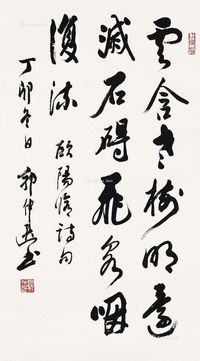 云含老樹明還
滅石碍飛泉咽
復流 歐陽脩詩句
丁卯冬日 郭仲选書